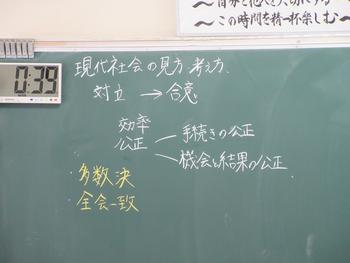 〜自分と他人を大切にする〜
〜この時間を精一杯楽しむ〜
0:39
現代社会の見方、考え方、
対立 → 合意
効率
公正 手続きの公正
機会と結果の公正
・多数決
・全会一致